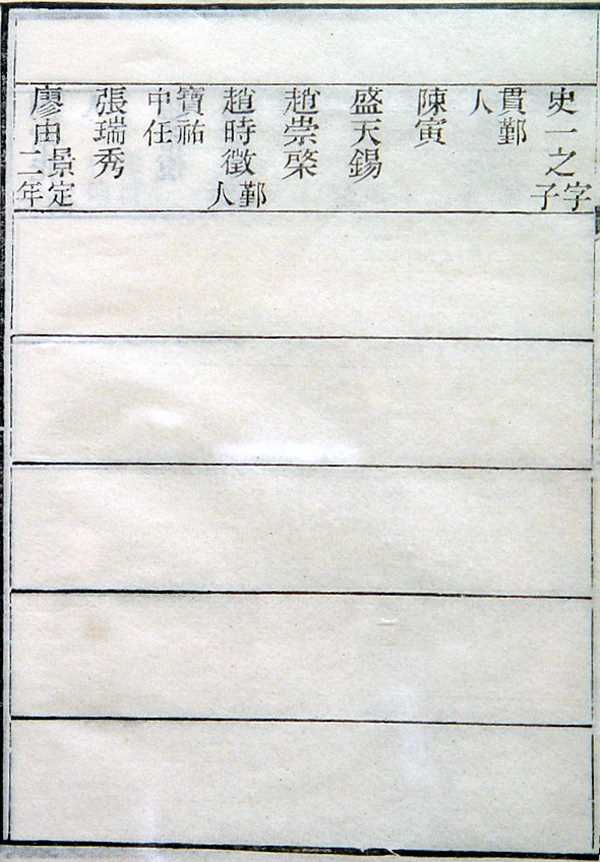 史一之字子
貫鄞人
陳寅
盛天錫
趙崇棨
趙時徵鄞人
寶祐中任
張瑞秀
廖由景定二年